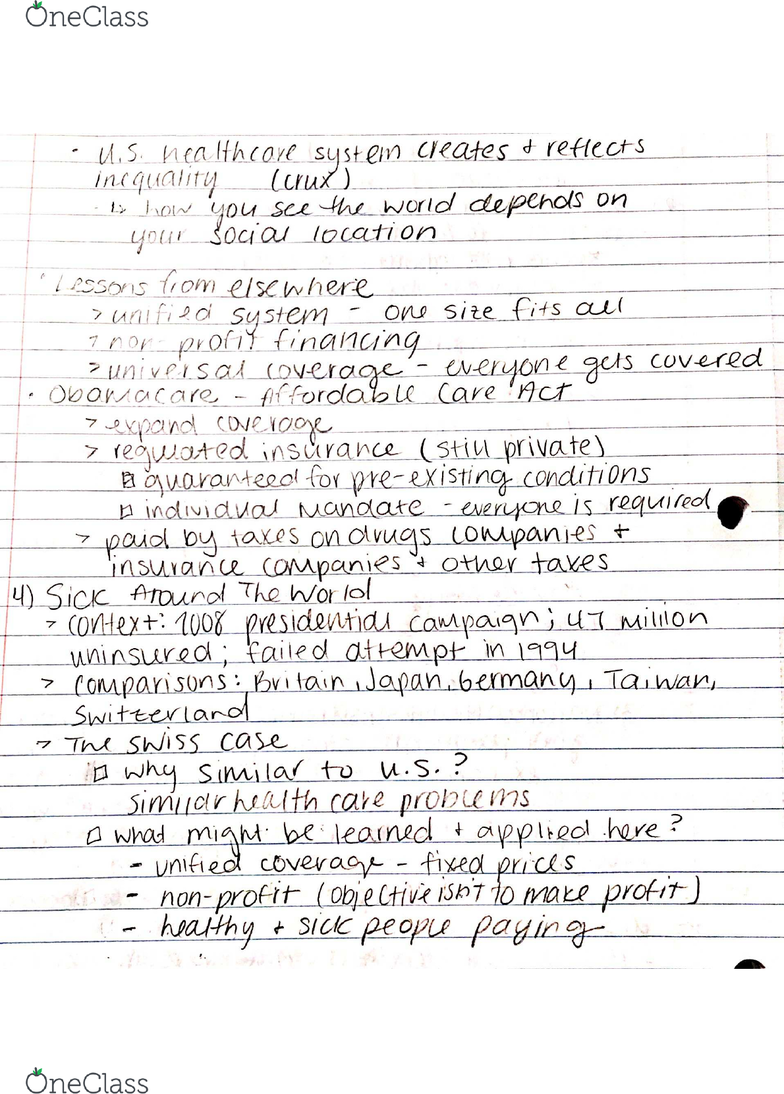 OneClass
· U.S. healthcare system creates + reflects
inequality (crux)
↳ how you see the world depends on
your social location
· Lessons from elsewhere
> unified system - one size fits all
> non-profit financing
> universal coverage - everyone gets covered
· Obamacare - Affordable Care Act
> expand coverage
> regulated insurance (still private)
□ guaranteed for pre-existing conditions
□ individual mandate - everyone is required
> paid by taxes on drugs companies +
insurance companies + other taxes
4) Sick Around The World
> context: 2008 presidential campaign; 47 million
uninsured; failed attempt in 1994
> comparisons: Britain, Japan, Germany, Taiwan,
Switzerland
> The Swiss case
□ why similar to U.S.?
similar health care problems
□ what might be learned + applied here?
- unified coverage - fixed prices
- non-profit (objective isn't to make profit)
- healthy + sick people paying
OneClass